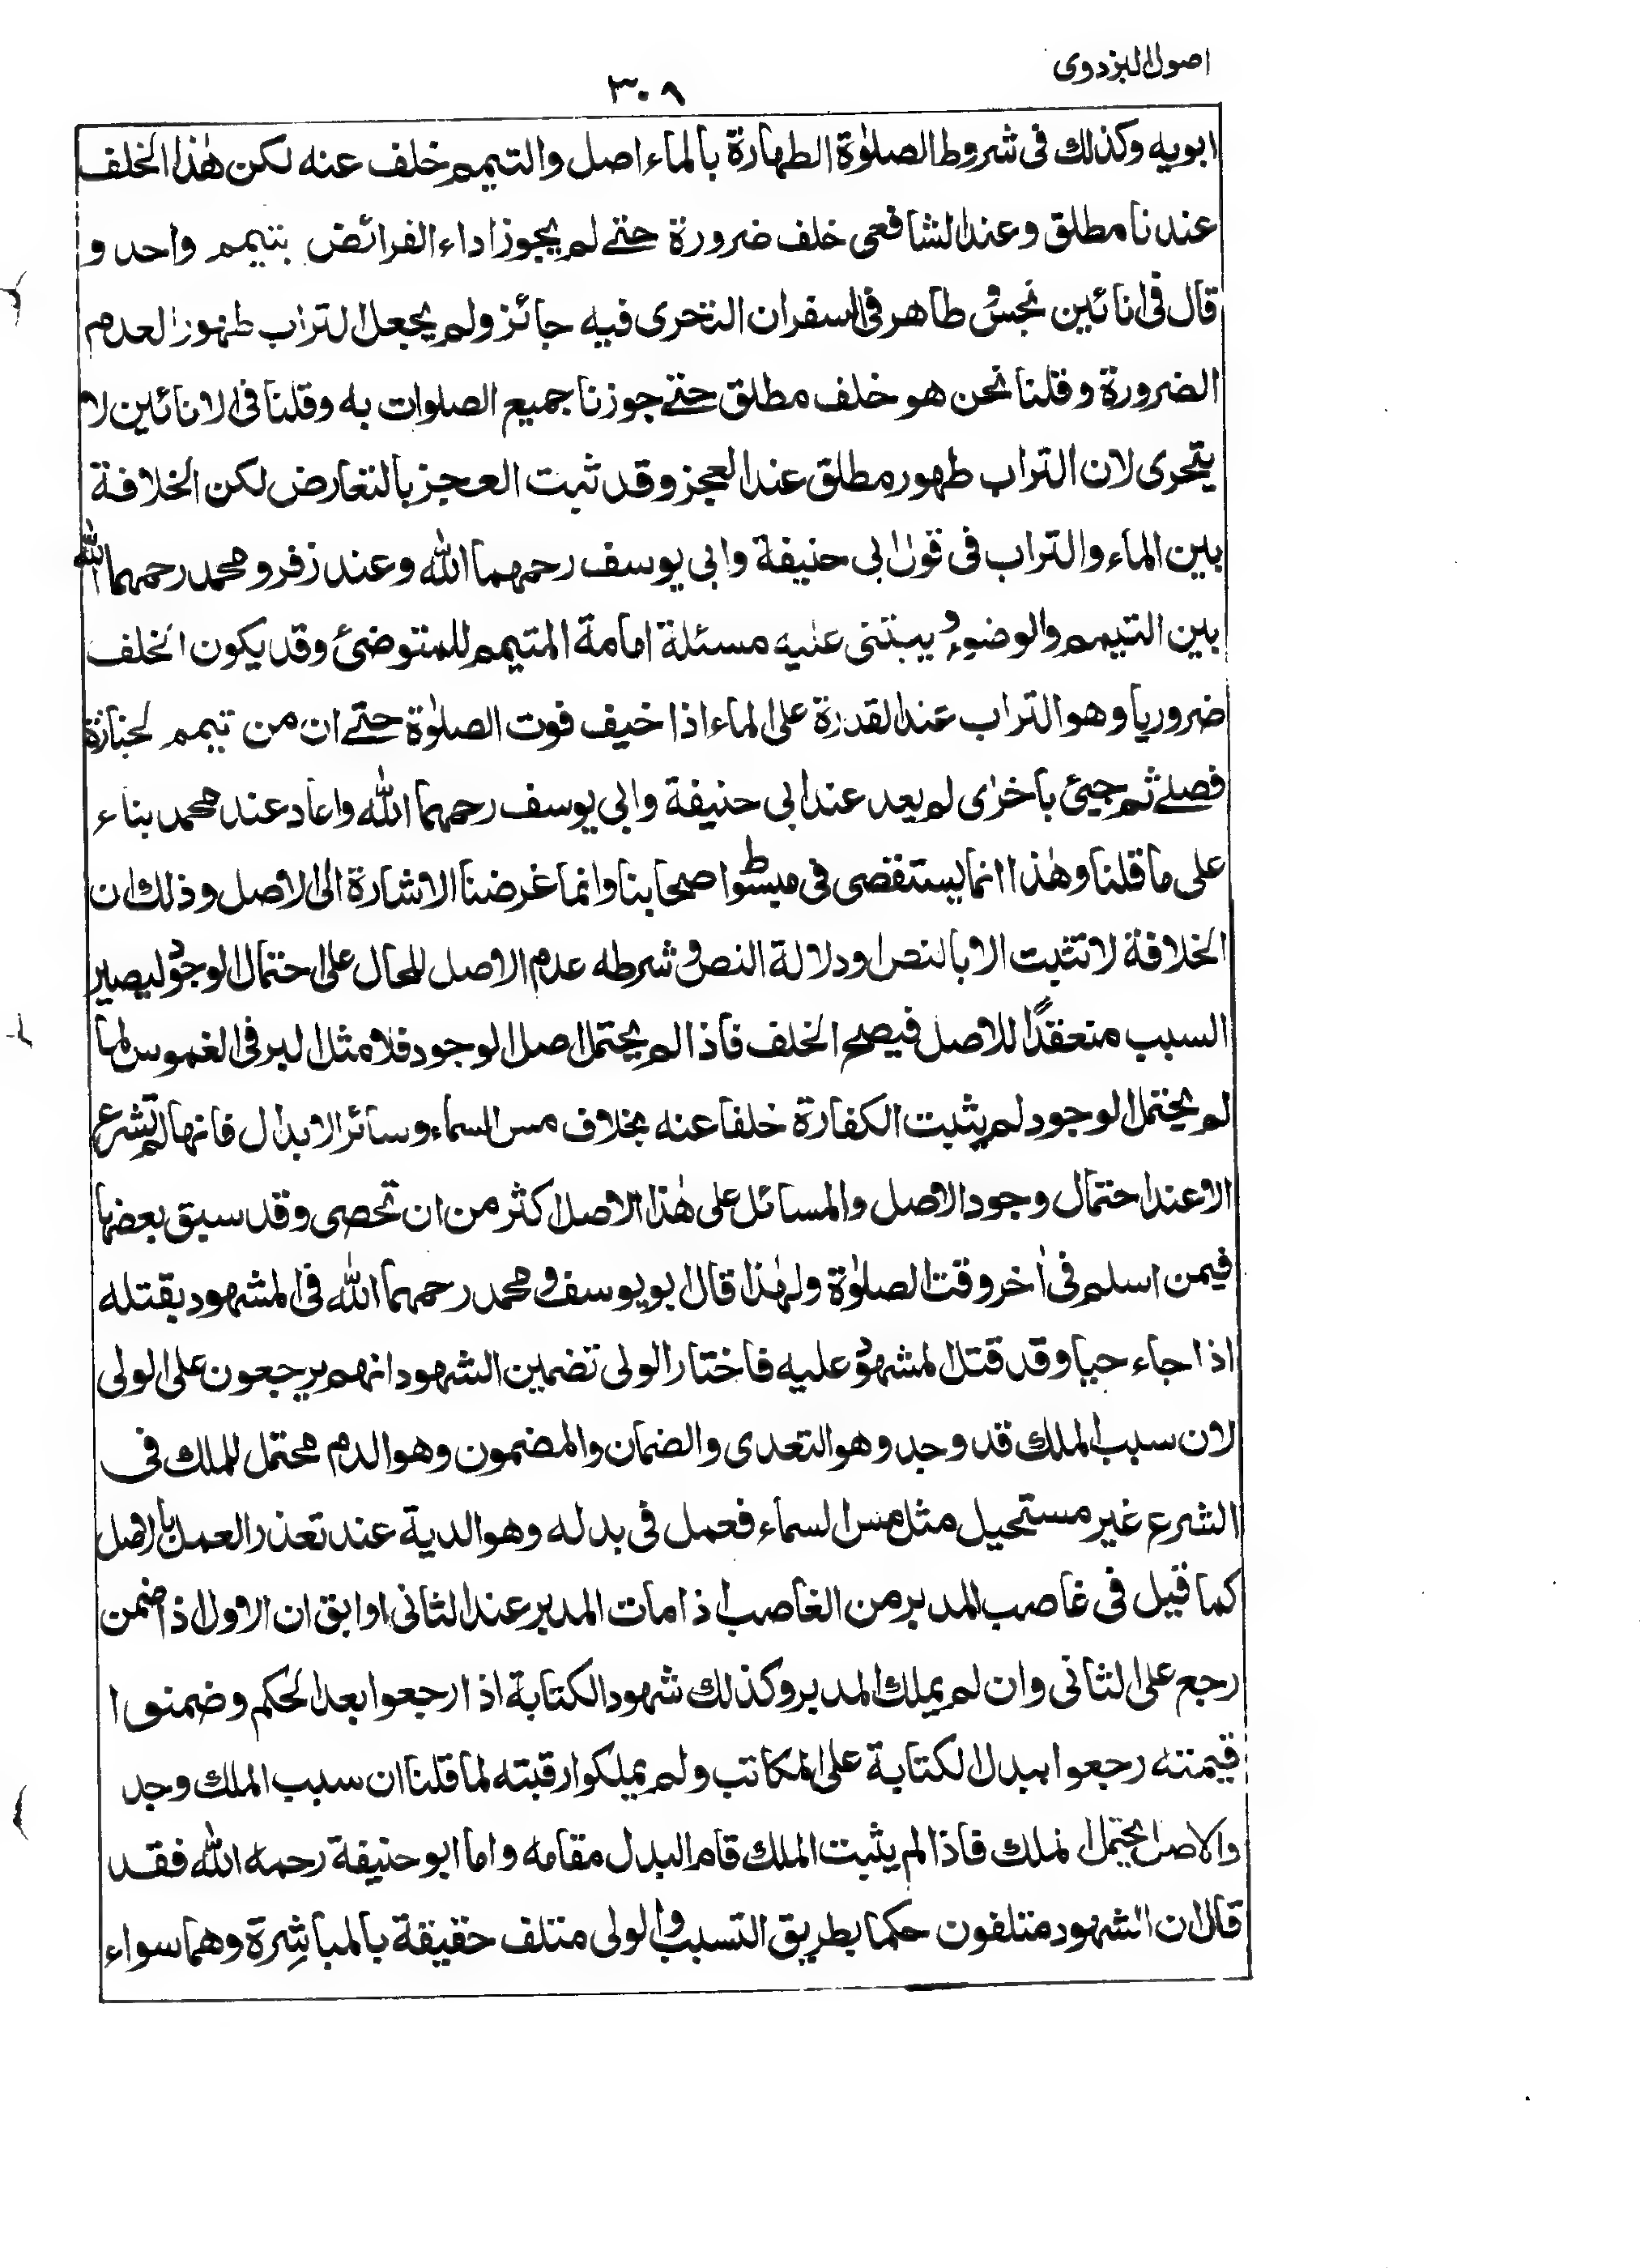 اصول البزدوی
۳۰۹
ابویه وكذلك فی شروط الصلوٰة الطهارة بالماء اصل والتیمم خلف عنه لكن هٰذا الخلف
عندنا مطلق وعند الشافعی خلف ضرورة حتے لم یجوز اداء الفرائض بتیمم واحد و
قال فی انائین نجس و طاهر فی السفر ان التحری فیه جائز ولم یجعل التراب طهورا لعدم
الضرورة وقلنا نحن هو خلف مطلق حتے جوزنا جمیع الصلوات به وقلنا فی الانائین لا
یتحری لان التراب طهور مطلق عند العجز وقد ثبت العجز بالتعارض لكن الخلافة
بین الماء والتراب فی قول ابی حنیفة وابی یوسف رحمهما الله وعند زفر ومحمد رحمهما الله
بین التیمم والوضوء و یبتنی علیه مسئلة امامة المتیمم للمتوضئ وقد یكون الخلف
ضروریا وهو التراب عند القدرة علی الماء اذا خیف فوت الصلوٰة حتے ان من تیمم لجنازة
فصلے ثم جیئ باخرٰی لم یعد عند ابی حنیفة وابی یوسف رحمهما الله واعاد عند محمد بناء
علی ما قلنا وهٰذا انما یستقصی فی مبسوط اصحابنا وانما غرضنا الاشارة الی الاصل وذلك ان
الخلافة لا تثبت الا بالنص او دلالة النص و شرطه عدم الاصل للحال علی احتمال الوجود لیصیر
السبب منعقدًا للاصل فیصح الخلف فاذا لم یحتمل اصل الوجود فلا مثل البر فی الغموس لما
لم یحتمل الوجود لم یثبت الكفارة خلفا عنه بخلاف مس السماء وسائر الابدال فانها لم تشرع
الا عند احتمال وجود الاصل والمسائل علی هٰذا الاصل اكثر من ان تحصی وقد سبق بعضها
فیمن اسلم فی اٰخر وقت الصلوٰة ولهٰذا قال ابو یوسف و محمد رحمهما الله فی المشهود بقتله
اذا جاء حیا وقد قتل المشهود علیه فاختار الولی تضمین الشهود انهم یرجعون علی الولی
لان سبب الملك قد وجد وهو التعدی والضمان والمضمون وهو الدم محتمل للملك فی
الشرع غیر مستحیل مثل مس السماء فعمل فی بدله وهو الدیة عند تعذر العمل بالاصل
كما قیل فی غاصب المدبر من الغاصب اذا مات المدبر عند الثانی او ابق ان الاول اذا ضمن
رجع علی الثانی وان لم یملك المدبر وكذلك شهود الكتابة اذا رجعوا بعد الحكم وضمنوا
قیمته رجعوا ببدل الكتابة علی المكاتب ولم یملكوا رقبته لما قلنا ان سبب الملك وجد
والاصل یحتمل الملك فاذا لم یثبت الملك قام البدل مقامه واما ابو حنیفة رحمه الله فقد
قال ان الشهود متلفون حكما بطریق التسبب والولی متلف حقیقة بالمباشرة وهما سواء